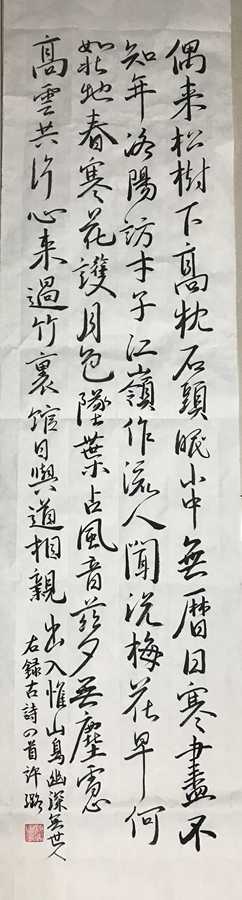 偶来松樹下高枕石頭眠山中無曆日寒盡不
知年洛陽訪才子江嶺作流人聞説梅花早何
如北地春寒花護月色墜葉占風音茲夕无塵慮
高雲共片心来過竹裏館日與道相親
出入惟山鳥幽深无世人
右録古詩四首許